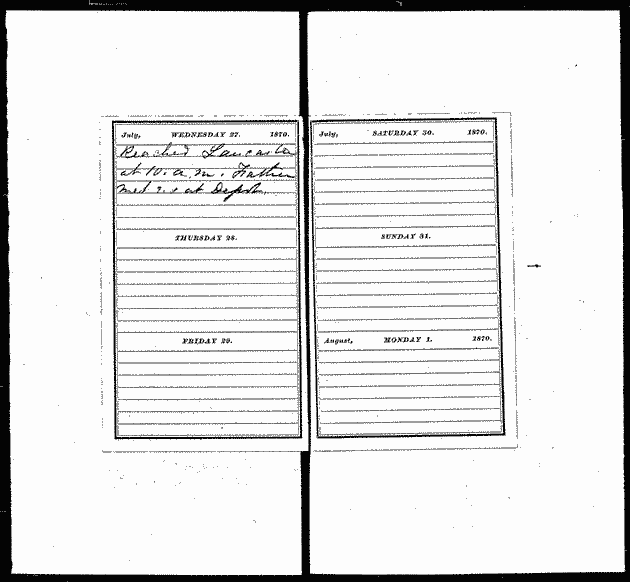 July, WEDNESDAY 27. 1870.
Reached Lancaster
at 10. a.m. Father
met us at Depot.
THURSDAY 28.
FRIDAY 29.
July, SATURDAY 30. 1870.
SUNDAY 31.
August, MONDAY 1. 1870.